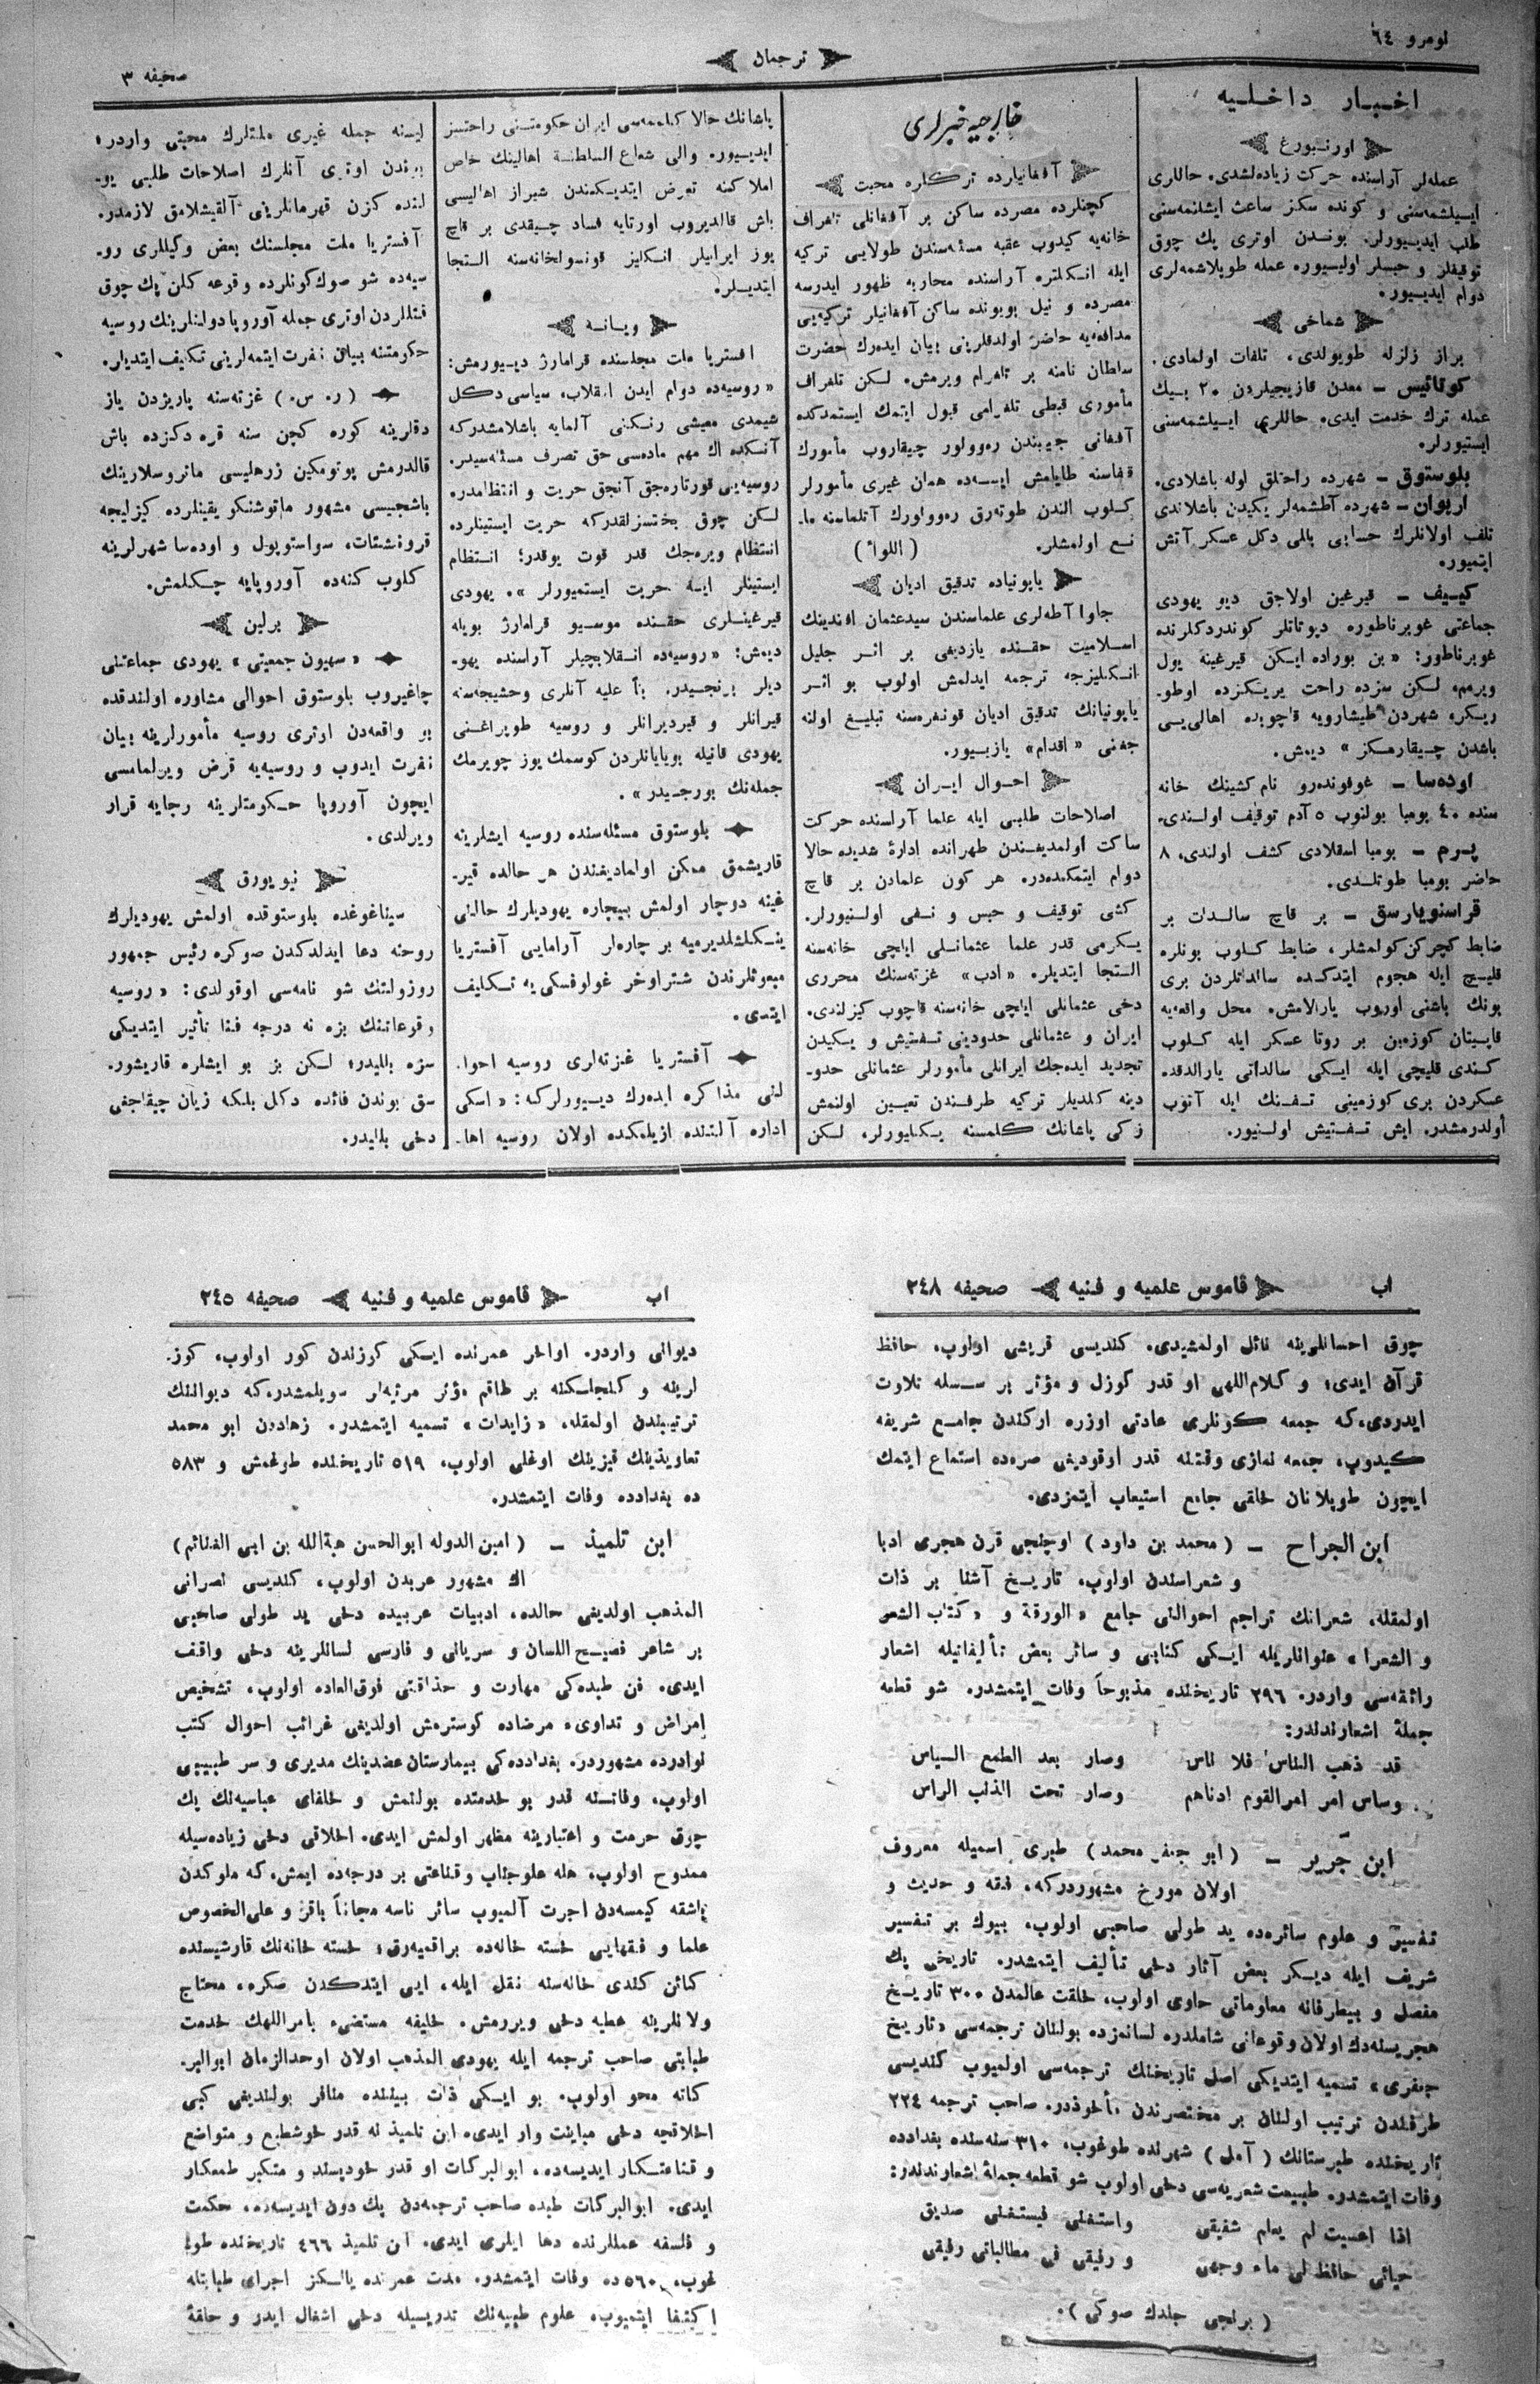 نومرو ٦٤
ترجمان
صحیفه ٣
اخبار داخلیه
اورنبورغ
عمله‌لر آراسنده حرکت زیاده‌لشدی. حاللری
ایییلشمه‌سنی و کونده سکز ساعت ایشلنمه‌سنی
طلب ایدییورلر. بوندن اوتری پك چوق
توقیفلر و حبسلر اولییور. عمله طوپلاشمه‌لری
دوام ایدییور.
شماخی
براز زلزله طویولدی، تلفات اولمادی.
کوتائیس – معدن قازیجیلردن ٢٠ بیك
عمله ترك خدمت ایدی. حاللری ایییلشمه‌سنی
ایستیورلر.
بلوستوق – شهرده راحتلق اوله باشلادی.
اریوان – شهرده آطشمه‌لر یکیدن باشلاندی
تلف اولانلرك حسابی بللی دکل عسکر آتش
ایتمیور.
کییف – قیرغین اولاجق دیو یهودی
جماعتی غوبرناطوره دپوتاتلر کوندردکلرنده
غوبرناطور: «بن بوراده ایکن قیرغینه یول
ویرمم، لکن سزده راحت یریکزده اوطو-
ریکز، شهردن طیشارویه قاچوبده اهالی‌یی
باشدن چیقارمکز» دیمش.
اوده‌سا – غوفونده‌رو نام کشینك خانه
سنده ٤٠ بومبا بولنوب ٥ آدم توقیف اولندی.
پرم – بومبا اسقلادی کشف اولندی، ٨
حاضر بومبا طوتلدی.
قراسنویارسق – بر قاچ سالدات بر
ضابط کچرکن کولمشلر، ضابط کلوب بونلره
قلیچ ایله هجوم ایتدکده سالداتلردن بری
بونك باشنی اوروب یارالامش. محل واقعه‌یه
قاپیتان کوزمین بر روتا عسکر ایله کلوب
کندی قلیچی ایله ایکی سالداتی یارالدقده
عسکردن بری کوزمینی تفنك ایله آتوب
أولدرمشدر. ایش تفتیش اولنیور.
خارجیه خبرلری
آفغانیلرده ترکلره محبت
کچنلرده مصرده ساکن بر آفغانلی تلغراف
خانه‌یه کیدوب عقبه مسئله‌سندن طولایی ترکیه
ایله انکلتره آراسنده محاربه ظهور ایدرسه
مصرده و نیل بویونده ساکن آفغانیلر ترکیه‌یی
مدافعه‌یه حاضر اولدقلرینی بیان ایدەرك حضرت
سلطان نامنه بر تلغرام ویرمش. لکن تلغراف
مأموری قبطی تلغرامی قبول ایتمك ایستمدکده
آفغانی جیبندن ره‌وولور چیقاروب مأمورك
قفاسنه طایامش ایسه‌ده همان غیری مأمورلر
کلوب الندن طوته‌رق ره‌وولورك آتلماسنه ما-
نع اولمشلر. (اللواء)
یاپونیاده تدقیق ادیان
جاوا آطه‌لری علماسندن سید عثمان افندینك
اسلامیت حقنده یازدیغی بر اثر جلیل
انکلیزجه ترجمه ایدلمش اولوب بو اثر
یاپونیانك تدقیق ادیان قونفره‌سنه تبلیغ اولنه
جغنی «اقدام» یازییور.
احوال ایران
اصلاحات طلبی ایله علما آراسنده حرکت
ساکت اولمدیغندن طهرانده ادارۀ شدیده حالا
دوام ایتمکده‌در. هر کون علمادن بر قاچ
کشی توقیف و حبس و نفی اولنیورلر.
یکرمی قدر علما عثمانلی ایلچی خانه‌سنه
التجا ایتدیلر. «ادب» غزته‌سنك محرری
دخی عثمانلی ایلچی خانه‌سنه قاچوب کیزلندی.
ایران و عثمانلی حدودینی تفتیش و یکیدن
تجدید ایده‌جك ایرانلی مأمورلر عثمانلی حدو-
دینه کلدیلر ترکیه طرفندن تعیین اولنمش
زکی پاشانك کلمسنه بکلیورلر، لکن
پاشانك حالا کلمه‌مسی ایران حکومتنی راحتسز
ایدییور. والی شعاع السلطنه اهالینك خاص
املاکنه تعرض ایتدیکندن شیراز اهالیسی
باش قالدیروب اورتایه فساد چیقدی بر قاچ
یوز ایرانیلر انکلیز قونسولخانه‌سنه التجا
ایتدیلر.
ویانه
افستریا ملت مجلسنده قرامارژ دییورمش:
«روسیه‌ده دوام ایدن انقلاب، سیاسی دکل
شیمدی معیشی رنکنی آلمایه باشلامشدرکه
آنسکده اك مهم ماده‌سی حق تصرف مسئله‌سیدر.
روسیه‌یی قورتاره‌جق آنجق حریت و انتظامدر.
لکن چوق بختسزلقدرکه حریت ایستینلرده
انتظام ویره‌جك قدر قوت یوقدر؛ انتظام
ایستینلر ایسه حریت ایستمیورلر». یهودی
قیرغینلری حقنده موسیو قرامارژ بویله
دیمش: «روسیه‌ده انقلابچیلر آراسنده یهو-
دیلر برنجیدر. بناً علیه آنلری وحشیجه‌سنه
قیرانلر و قیردیرانلر و روسیه طوپراغنی
یهودی قانیله بویایانلردن کوسمك یوز چویرمك
جمله‌نك بورجیدر».
بلوستوق مسئله‌سنده روسیه ایشلرینه
قاریشمق ممکن اولمادیغندن هر حالده قیر-
غینه دوچار اولمش بیچاره یهودیلرك حالنی
ینکللشدیرمیه بر چاره‌لر آرامایی آفستریا
مبعوثلرندن شتراوخر غولوفسکی‌یه تکلیف
ایتدی.
آفستریا غزته‌لری روسیه احوا-
لنی مذاکره ایدەرك دییورلرکه: «اسکی
اداره آلتنده ازیلمکده اولان روسیه اها-
لیسنه جمله غیری ملتلرك محبتی واردر؛
بوندن اوتری آنلرك اصلاحات طلبی یو-
لنده کزن قهرمانلرینی آلقیشلامق لازمدر.
آفستریا ملت مجلسنك بعض وکیللری رو-
سیه‌ده شو صوك کونلرده وقوعه کلن پك چوق
قتللردن اوتری جمله آوروپا دولتلرینك روسیه
حکومتنه بیان نفرت ایتمه‌لرینی تکلیف ایتدیلر.
(ر. س.) غزته‌سنه پاریژدن یاز
دقلرینه کوره کچن سنه قره دکزده باش
قالدرمش پوتومکین زرهلیسی ماتروسلارینك
باشچیسی مشهور ماتوشنکو یقینلرده کیزلیجه
قرونشتات، سواستوپول و اوده‌سا شهرلرینه
کلوب کنه‌ده آوروپایه چکلمش.
برلین
«سهیون جمعیتی» یهودی جماعتنی
چاغیروب بلوستوق احوالی مشاوره اولندقده
بو واقعه‌دن اوتری روسیه مأمورلرینه بیان
نفرت ایدوب و روسیه‌یه قرض ویرلمامسی
ایچون آوروپا حکومتلرینه رجایه قرار
ویرلدی.
نیو یورق
سیناغوغده بلوستوقده اولمش یهودیلرك
روحنه دعا ایدلدکدن صوکره رئیس جمهور
روزولتك شو نامه‌سی اوقولدی: «روسیه
وقوعاتنك بزه نه درجه فنا تأثیر ایتدیکی
سزه بللیدر؛ لکن بز بو ایشلره قاریشور-
سق بوندن فائده دکل بلکه زیان چیقاجغی
دخی بللیدر.
اب قاموس علمیه و فنیه صحیفه ٢٤٨
چوق احسانلرینه نائل اولمشیدی. کندیسی قریشی اولوب، حافظ
قرآن ایدی؛ و کلام‌اللهی او قدر کوزل و مؤثر بر سسله تلاوت
ایدردی، که جمعه کونلری عادتی اوزره ارکندن جامع شریفه
کیدوب، جمعه نمازی وقتنه قدر اوقودیغی صره‌ده استماع ایتمك
ایچون طوپلانان خلقی جامع استیعاب ایتمزدی.
ابن الجراح – (محمد بن داود) اوچنجی قرن هجری ادبا
و شعراسندن اولوب، تاریخ آشنا بر ذات
اولمقله، شعرانك تراجم احوالنی جامع «الورقة و «کتاب الشعر
و الشعرا» عنوانلریله ایکی کتابی و سائر بعض تألیفاتیله اشعار
رائقه‌سی واردر. ٢٩٦ تاریخنده مذبوحاً وفات ایتمشدر. شو قطعه
جملۀ اشعارندندر:
قد ذهب الناس فلا ناس وصار بعد الطمع الیاس
وساس امر امرالقوم ادناهم وصار تحت الذنب الراس
ابن جریر – (ابو جعفر محمد) طبری اسمیله معروف
اولان مورخ مشهوردرکه، فقه و حدیث و
تفسیر و علوم سائره‌ده ید طولی صاحبی اولوب، بیوك بر تفسیر
شریف ایله دیکر بعض آثار دخی تألیف ایتمشدر. تاریخی پك
مفصل و بیطرفانه معلوماتی حاوی اولوب، خلقت عالمدن ٣٠٠ تاریخ
هجریسنه‌دك اولان وقوعاتی شاملدر. لسانمزده بولنان ترجمه‌سی «تاریخ
جعفری» تسمیه ایتدیکی اصل تاریخنك ترجمه‌سی اولمیوب کندیسی
طرفندن ترتیب اولنان بر مختصرندن مأخوذدر. صاحب ترجمه ٢٢٤
تاریخنده طبرستانك (آمل) شهرنده طوغوب، ٣١٠ سنه‌سنده بغدادده
وفات ایتمشدر. طبیعت شعریه‌سی دخی اولوب شو قطعه جملۀ اشعارندندر:
اذا اعسرت لم یعلم شفیقی واستغنی فیستغنی صدیق
حیائی حافظ لی ماء وجهی و رفیقی فی مطالباتی رفیقی
(برنجی جلدك صوکی).
اب قاموس علمیه و فنیه صحیفه ٢٤٥
دیوانی واردر. اواخر عمرنده ایکی کوزندن کور اولوب، کوز-
لرینه و کنجلکنه بر طاقم مؤثر مرثیه‌لر سویلمشدر، که دیواننك
ترتیبندن اولمقله، «زایدات» تسمیه ایتمشدر. زهاددن ابو محمد
تعاویذینك قیزینك اوغلی اولوب، ٥١٩ تاریخنده طوغمش و ٥٨٣
ده بغدادده وفات ایتمشدر.
ابن تلمیذ – (امین الدوله ابوالحسن هبةالله بن ابی الغنائم)
اك مشهور عربدن اولوب، کندیسی نصرانی
المذهب اولدیغی حالده، ادبیات عربیده دخی ید طولی صاحبی
بر شاعر فصیح اللسان و سریانی و فارسی لسانلرینه دخی واقف
ایدی. فن طبده‌کی مهارت و حذاقتی فوق‌العاده اولوب، تشخیص
امراض و تداویء مرضاده کوسترمش اولدیغی غرائب احوال کتب
نوادرده مشهوردر. بغدادده‌کی بیمارستان عضدینك مدیری و سر طبیبی
اولوب، وفاتنه قدر بو خدمتده بولنمش و خلفای عباسیه‌نك پك
چوق حرمت و اعتبارینه مظهر اولمش ایدی. اخلاقی دخی زیاده‌سیله
ممدوح اولوب، هله علوجناب و قناعتی بر درجه‌ده ایمش، که ملوکدن
باشقه کیمسه‌دن اجرت آلمیوب سائر ناسه مجاناً باقر و علی‌الخصوص
علما و فقهایی خسته خانه‌ده براقمیه‌رق؛ خسته خانه‌نك قارشیسنده
کائن کندی خانه‌سنه نقل ایله، ایی ایتدکدن صکره، محتاج
اولانلرینه عطیه دخی ویررمش. خلیفه مستضیء بأمراللهك خدمت
طبابتی صاحب ترجمه ایله یهودی المذهب اولان اوحدالزمان ابوالبر-
کاته محو اولوب، بو ایکی ذات بیننده منافر بولندیغی کبی
اخلاقجه دخی مباینت وار ایدی، ابن تلمیذ نه قدر خوشطبع و متواضع
و قناعتکار ایدیسه‌ده، ابوالبرکات او قدر خودپسند و متکبر طمعکار
ایدی. ابوالبرکات طبده صاحب ترجمه‌دن پك دون ایدیسه‌ده، حکمت
و فلسفه عمللرنده دها ایلری ایدی. ابن تلمیذ ٤٦٦ تاریخنده طو-
غوب، ٥٦٠ ده وفات ایتمشدر. مدت عمرنده یالکز اجرای طبابتله
اکتفا ایتمیوب، علوم طبیه‌نك تدریسیله دخی اشغال ایدر و حلقۀ